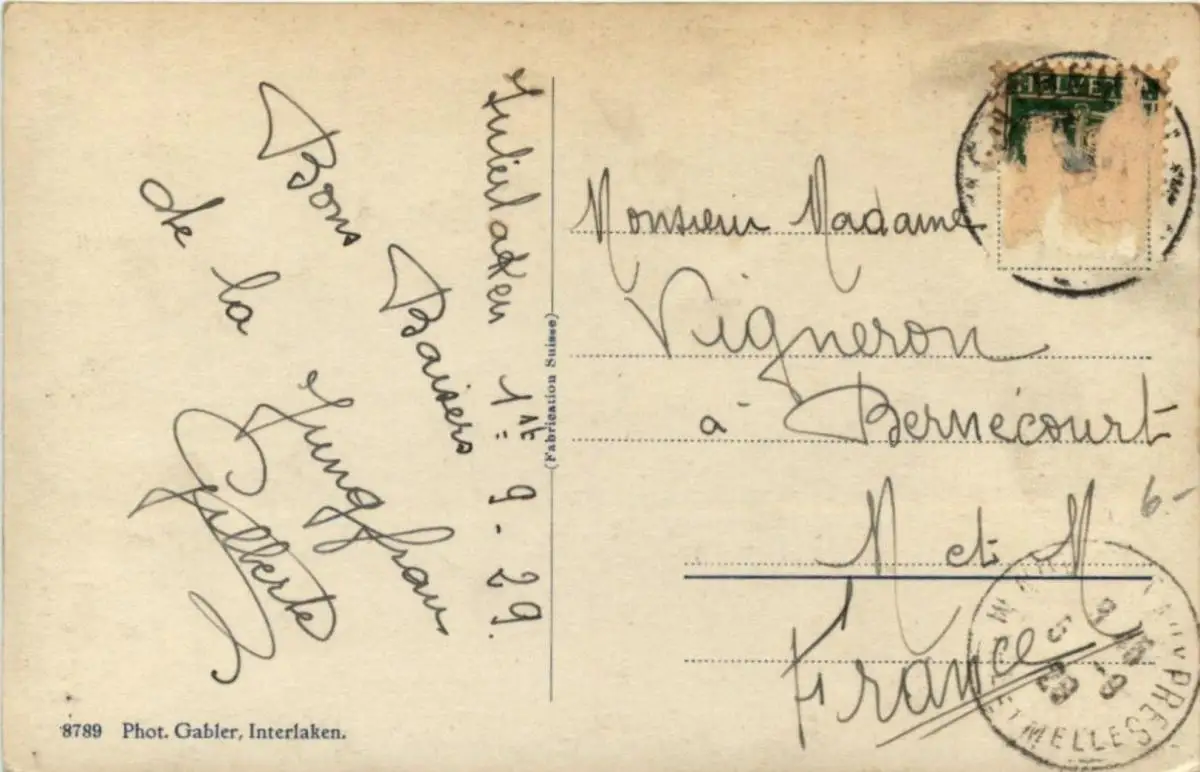 Interlaken 1er 9-29.
Bons Baisers
de la Jungfrau
Gilberte
(Fabrication Suisse)
HELVETIA
Monsieur Madame
Vigneron
à Bernécourt
M et M
France
6-
8789 Phot. Gabler, Interlaken.